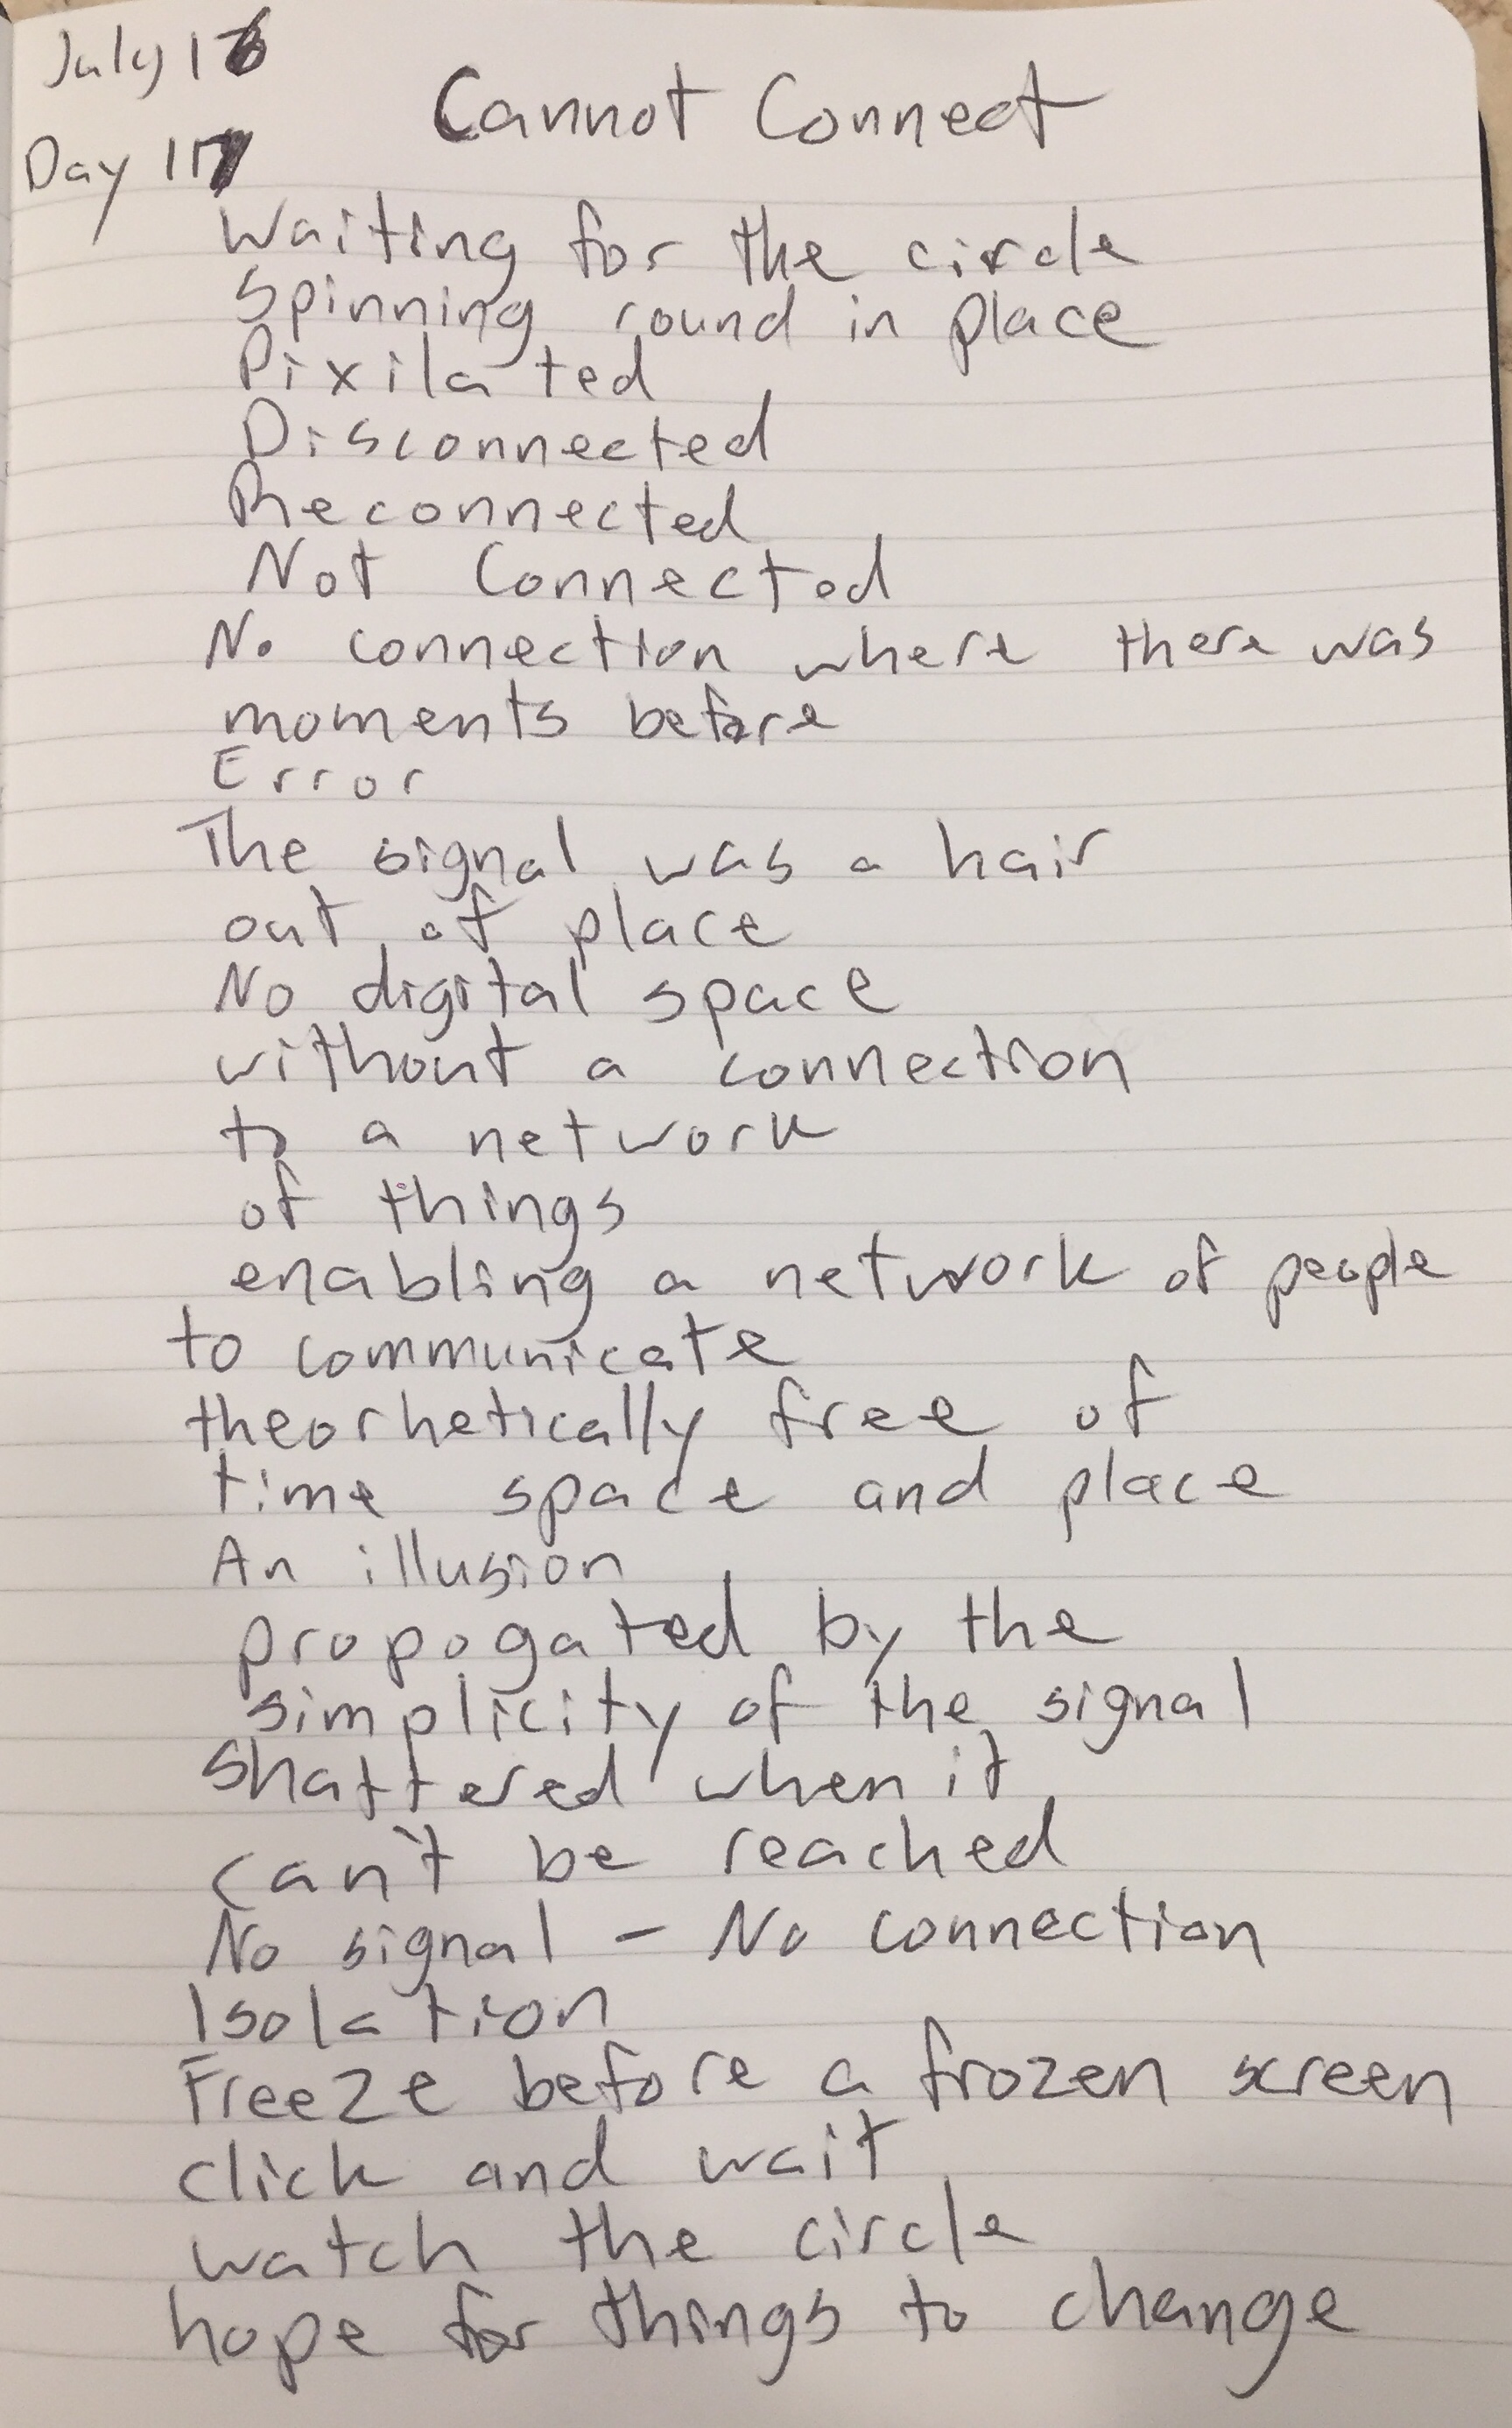 July 16
Cannot Connect
Day 117
Waiting for the circle
Spinning round in place
Pixilated
Disconnected
Reconnected
Not Connected
No connection where there was
moments before
Error
The signal was a hair
out of place
No digital space
without a connection
to a network
of things
enabling a network of people
to communicate
theorhetically free of
time space and place
An illusion
propogated by the
simplicity of the signal
shattered when it
can't be reached
No signal - No connection
Isolation
Freeze before a frozen screen
click and wait
watch the circle
hope for things to change